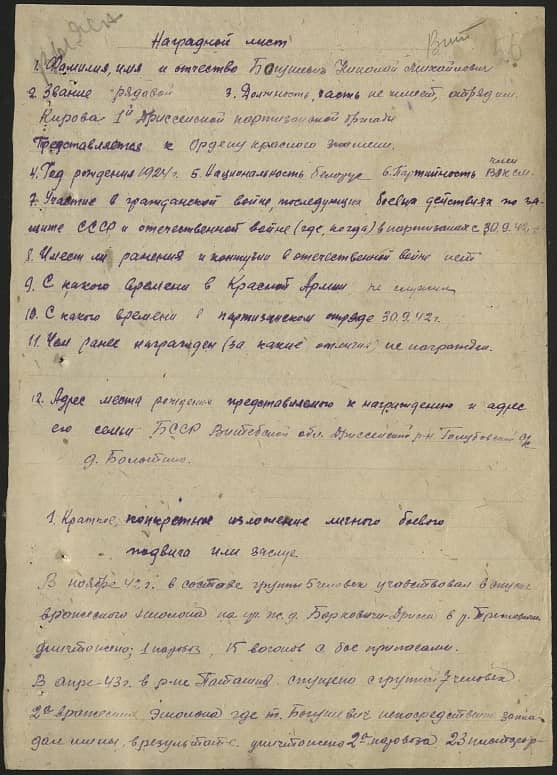 Наградной лист
1. Фамилия, имя и отчество Богушевич Николай Михайлович
2. Звание рядовой 3. Должность, часть не имеет, отряд им.
Кирова 1й Дриссенской партизанской бригады
Представляется к Ордену красного знамени.
4. Год рождения 1924 г. 5. Национальность белорус 6. Партийность член ВЛКСМ.
7. Участие в гражданской войне, последующих боевых действиях по за-
щите СССР и отечественной войне (где, когда) в партизанах с 30.9.42 г.
8. Имеет ли ранения и контузии в отечественной войне нет
9. С какого времени в Красной Армии не служил
10. С какого времени в партизанском отряде 30.9.42 г.
11. Чем ранее награжден (за какие отличия) не награжден.
12. Адрес места рождения представляемого к награждению и адрес
его семьи БССР Витебской обл. Дриссенский р-н Голубовский с/с
д. Болотино.
1. Краткое, конкретное изложение личного боевого
подвига или заслуг
В ноябре 42 г. в составе группы 5 человек участвовал в спуске
вражеского эшелона на ул. ж.д. Борковичи-Дрисса в д.
уничтожено; 1 паровоз, 15 вагонов с боеприпасами.
В апре 43 г. в р-не спущено с группой 7 человек
2а вражеских эшелона где т. Богушевич непосредственно закла-
дал мины, в результате уничтожено 2а паровоза 23